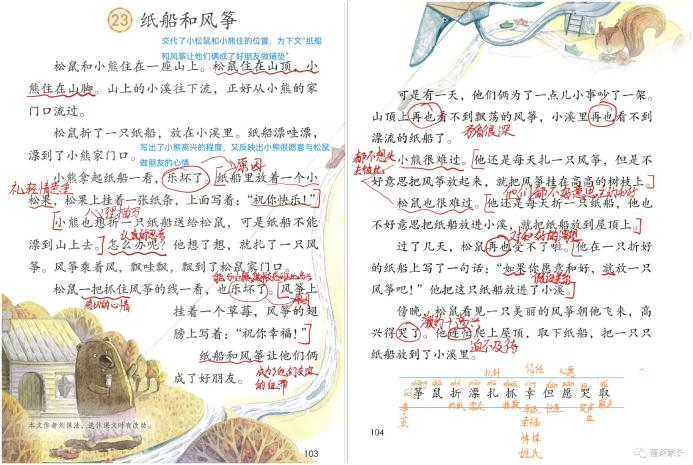 23 纸船和风筝
交代了小松鼠和小熊住的位置,为下文“纸船
和风筝让他们俩成了好朋友做铺垫”
松鼠和小熊住在一座山上。松鼠住在山顶,小
熊住在山脚。山上的小溪往下流,正好从小熊的家
门口流过。
松鼠折了一只纸船,放在小溪里。纸船漂哇漂,
漂到了小熊家门口。
写出了小熊高兴的程度,又反映出小熊很愿意与松鼠
做朋友的心情
原因
小熊拿起纸船一看,乐坏了。纸船里放着一个小
礼轻情意重
松果,松果上挂着一张纸条,上面写着:“祝你快乐!”
心理描写
小熊也想折一只纸船送给松鼠,可是纸船不能
漂到山上去。怎么办呢?他想了想,就扎了一只风
筝。风筝乘着风,飘哇飘,飘到了松鼠家门口。
松鼠一把抓住风筝的线一看,也乐坏了。风筝上
挂着一个草莓,风筝的翅
膀上写着:“祝你幸福!”
纸船和风筝让他们俩
成了好朋友。
本文作者刘保法,选作课文时有改动。
103
可是有一天,他们俩为了一点儿小事吵了一架。
山顶上再也看不到飘荡的风筝,小溪里再也看不到
漂流的纸船了。
矛盾很深
小熊很难过。他还是每天扎一只风筝,但是不
好意思把风筝放起来,就把风筝挂在高高的树枝上。
松鼠也很难过。他还是每天折一只纸船,他也
不好意思把纸船放进小溪,就把纸船放到屋顶上。
过了几天,松鼠再也受不了啦。他在一只折好
的纸船上写了一句话:“如果你愿意和好,就放一只
风筝吧!”他把这只纸船放进了小溪。
傍晚,松鼠看见一只美丽的风筝朝他飞来,高
兴得哭了。他连忙爬上屋顶,取下纸船,把一只只
迫不及待
纸船放到了小溪里。
筝 鼠 折 漂 扎 抓 幸 但 愿 哭 取
幸福
姓氏
104
蔓延家长